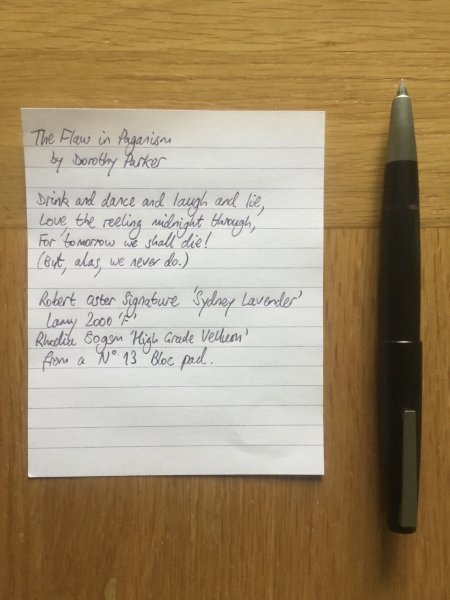 The Flaw in Paganism
by Dorothy Parker
Drink and dance and laugh and lie,
Love, the reeling midnight through,
For tomorrow we shall die!
(But, alas, we never do.)
Robert Oster Signature 'Sydney Lavender'
Lamy 2000 'F'
Rhodia 80gsm 'High Grade Vellum'
from a Nº 13 Bloc pad.